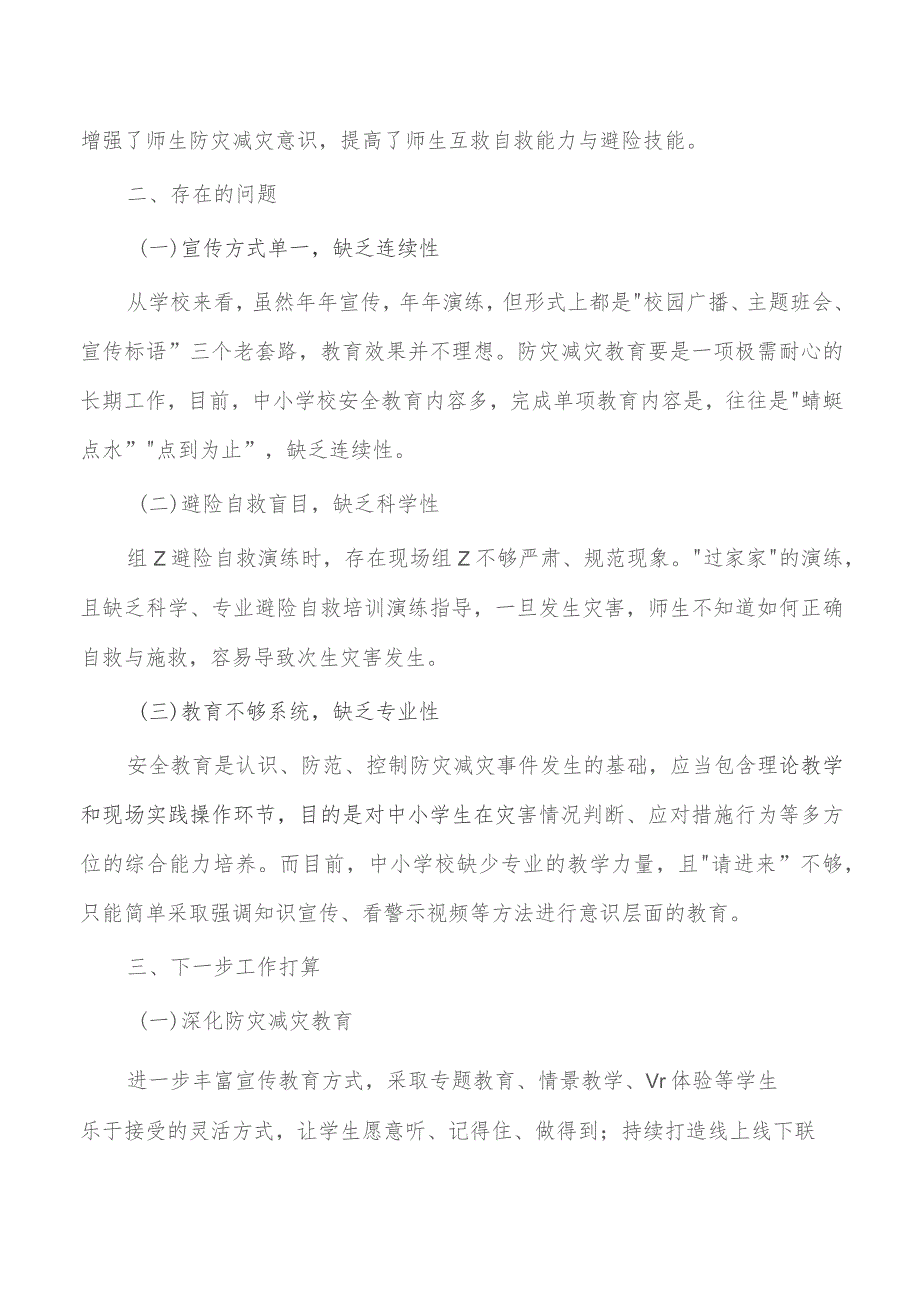 增强了师生防灾减灾意识，提高了师生互救自救能力与避险技能。
二、存在的问题
(一)宣传方式单一，缺乏连续性
从学校来看，虽然年年宣传，年年演练，但形式上都是"校园广播、主题班会、
宣传标语”三个老套路，教育效果并不理想。防灾减灾教育要是一项极需耐心的
长期工作，目前，中小学校安全教育内容多，完成单项教育内容是，往往是"蜻蜓
点水”"点到为止”，缺乏连续性。
(二)避险自救盲目，缺乏科学性
组Z避险自救演练时，存在现场组Z不够严肃、规范现象。"过家家"的演练，
且缺乏科学、专业避险自救培训演练指导，一旦发生灾害，师生不知道如何正确
自救与施救，容易导致次生灾害发生。
(三)教育不够系统，缺乏专业性
安全教育是认识、防范、控制防灾减灾事件发生的基础，应当包含理论教学
和现场实践操作环节，目的是对中小学生在灾害情况判断、应对措施行为等多方
位的综合能力培养。而目前，中小学校缺少专业的教学力量，且"请进来”不够，
只能简单采取强调知识宣传、看警示视频等方法进行意识层面的教育。
三、下一步工作打算
(一)深化防灾减灾教育
进一步丰富宣传教育方式，采取专题教育、情景教学、Vr体验等学生
乐于接受的灵活方式，让学生愿意听、记得住、做得到；持续打造线上线下联